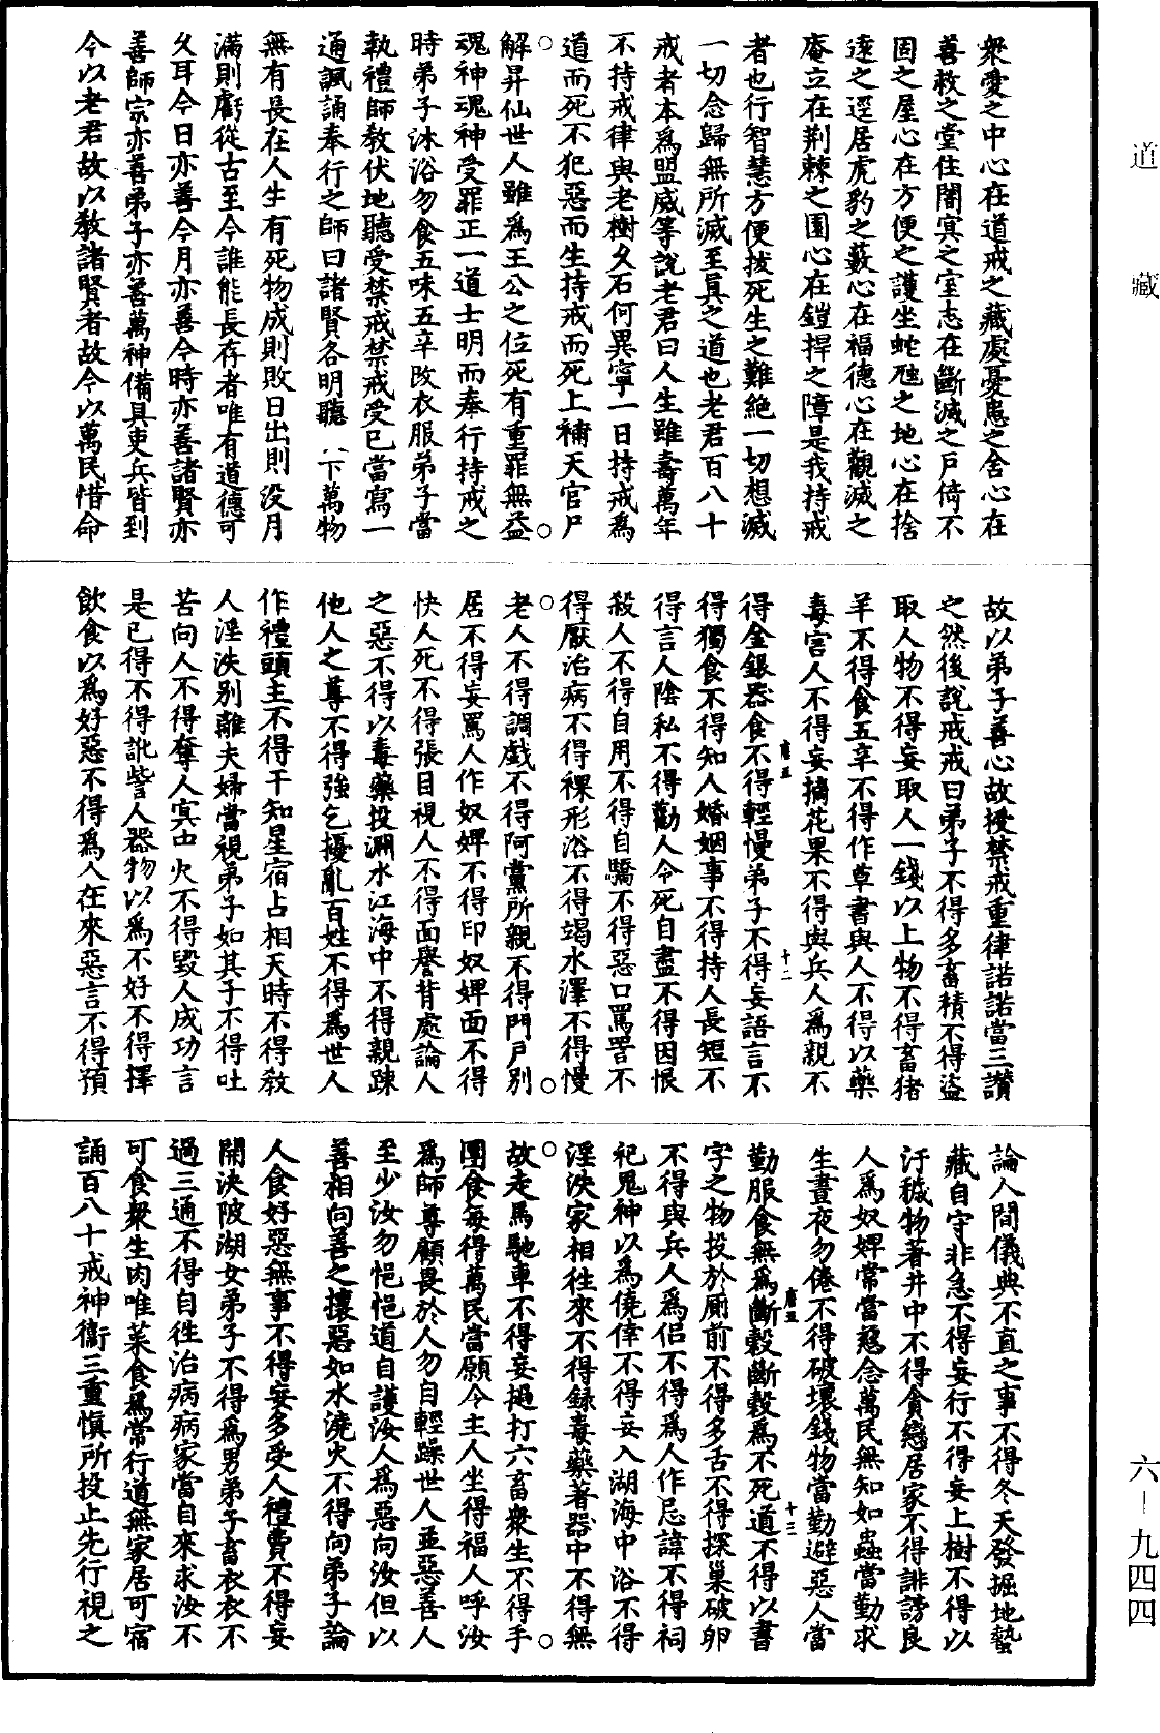 眾愛之中心在道戒之藏處憂患之舍心在
善救之堂住闇冥之室志在斷滅之戶倚不
固之屋心在方便之護坐蛇虺之地心在捨
遠之逕居虎豹之藪心在福德心在觀滅之
庵立在荆棘之園心在鎧捍之障是我持戒
者也行智慧方便拔死生之難絕一切想滅
一切念歸無所滅至真之道也老君百八十
戒者本為盟威等說老君曰人生雖壽萬年
不持戒律與老樹久石何異寧一日持戒為
道而死不犯惡而生持戒而死上補天官尸
解昇仙世人雖為王公之位死有重罪無益
魂神魂神受罪正一道士明而奉行持戒之
時弟子沐浴勿食五味五辛改衣服弟子當
執禮師教伏地聽受禁戒禁戒受已當寫一
通諷誦奉行之師曰諸賢各明聽 下萬物
無有長在人生有死物成則敗日出則沒月
滿則虧從古至今誰能長存者唯有道德可
久耳今日亦善今月亦善今時亦善諸賢亦
善師宗亦善弟子亦善萬神備具吏兵皆到
今以老君故以教諸賢者故今以萬民惜命
故以弟子善心故授禁戒重律諾諾當三讚
之然後說戒戒曰弟子不得多畜積不得盜
取人物不得妄取人一錢以上物不得畜猪
羊不得食五辛不得作草書與人不得以藥
毒害人不得妄摘花果不得與兵人為親不
得金銀器食不得輕慢弟子不得妄語言不
唐五
十二
得獨食不得知人婚姻事不得持人長短不
得言人陰私不得勸人令死自盡不得因恨
殺人不得自用不得自驕不得惡口罵詈不
得厭治病不得裸形浴不得竭水澤不得慢
老人不得調戲不得阿黨所親不得門戶別
居不得妄罵人作奴婢不得印奴婢面不得
快人死不得張目視人不得面譽背處論人
之惡不得以毒藥投淵水江海中不得親踈
他人之尊不得強乞擾亂百姓不得為世人
作禮頭主不得干知星宿占相天時不得教
人淫泆别離夫婦當視弟子如其子不得吐
苦向人不得奪人寞中火不得毀人成功言
是已得不得訿訾人器物以為不好不得擇
飲食以為好惡不得為人在來惡言不得預
論人間儀典不直之事不得冬天發掘地蟄
藏自守非急不得妄行不得妄上樹不得以
汙穢物著井中不得貪戀居家不得誹謗良
人為奴婢常當慈念萬民無知如蟲當勤求
生晝夜勿倦不得破壞錢物當勤避惡人當
勤服食無為斷穀斷穀為不死道不得以書
唐五
十三
字之物投於厠前不得多舌不得探巢破卵
不得與兵人為侶不得為人作忌諱不得祠
祀鬼神以為僥倖不得妄入湖海中浴不得
淫泆家相往來不得録毒藥著器中不得無
故走馬馳車不得妄撾打六畜眾生不得手
團食每得萬民當願令主人坐得福人呼汝
為師尊顧畏於人勿自輕躁世人並惡善人
至少汝勿悒悒道自護汝人為惡向汝但以
善相向善之攘惡如水澆火不得向弟子論
人食好惡無事不得妄多受人禮費不得妄
開決陂湖女弟子不得為男弟子畜衣衣不
過三通不得自往治病病家當自來求汝不
可食眾生肉唯菜食為常行道無家居可宿
誦百八十戒神衞三重慎所投止先行視之
道
藏
六－九四四